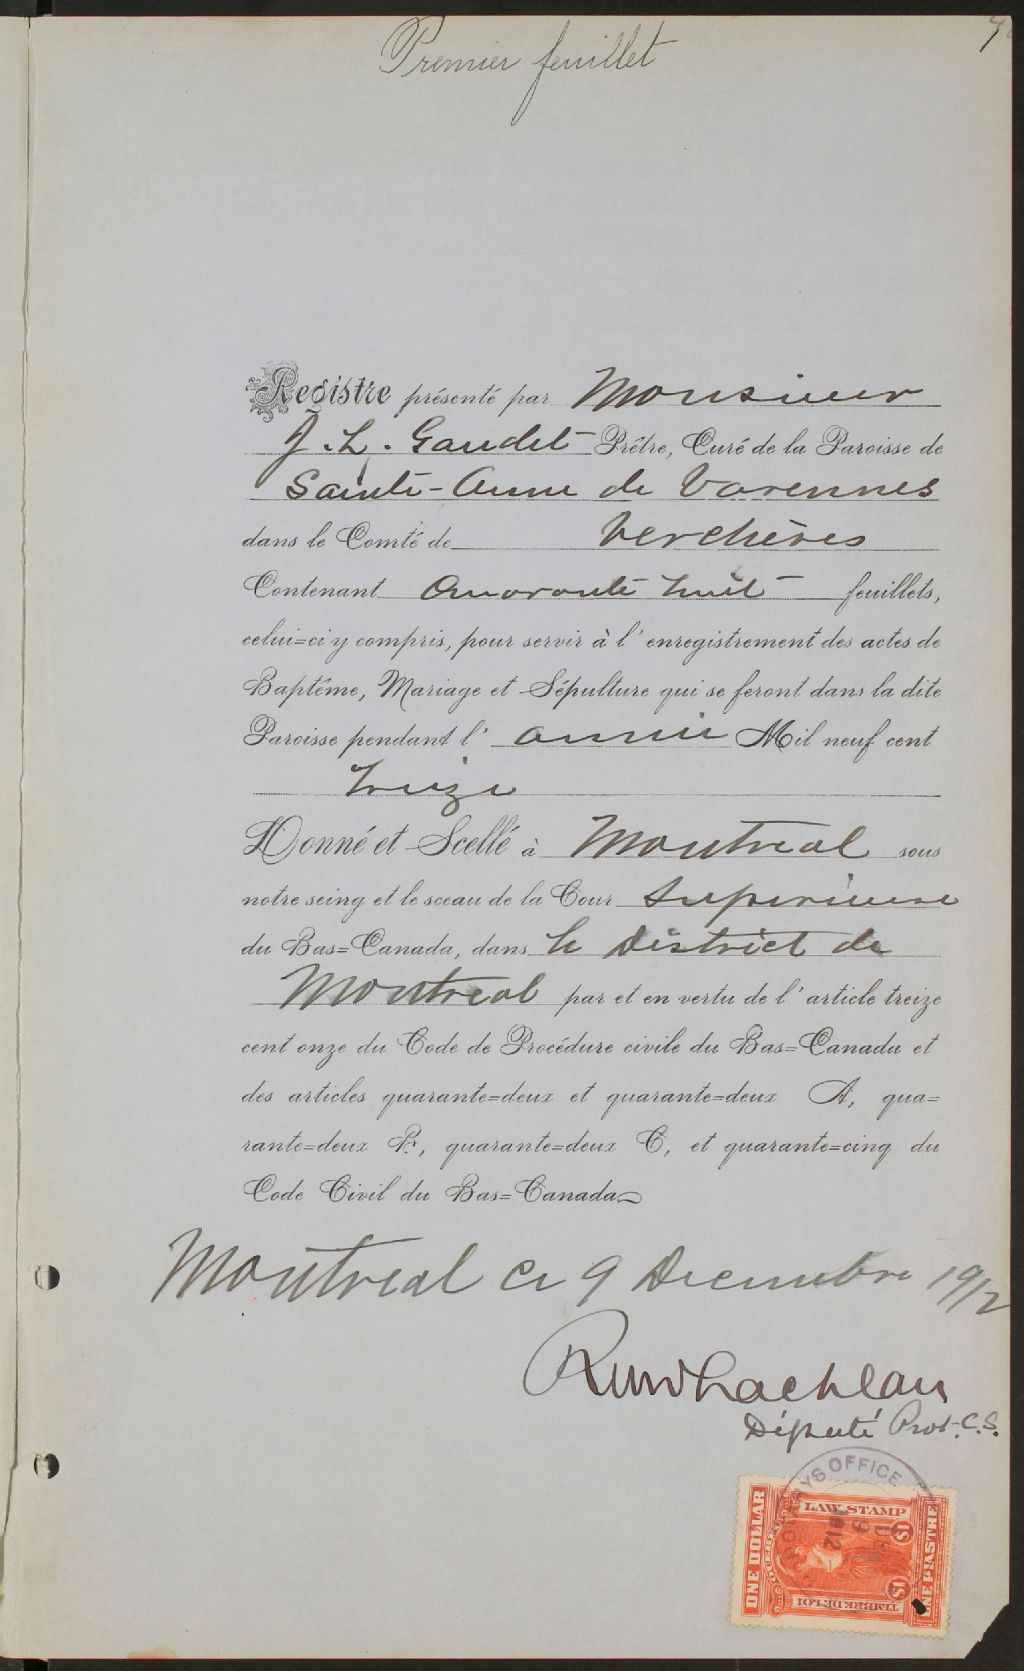 Premier feuillet
Registre présenté par Monsieur
J. L. Gaudet Prêtre, Curé de la Paroisse de
Sainte-Anne de Varennes
dans le Comté de Verchères
Contenant Quarante huit feuillets,
celui=ci y compris, pour servir à l'enregistrement des actes de
Baptême, Mariage et Sépulture qui se feront dans la dite
Paroisse pendant l'année Mil neuf cent
treize
Donné et Scellé à Montreal sous
notre seing et le sceau de la Cour Superieure
du Bas=Canada, dans le District de
Montreal par et en vertu de l'article treize
cent onze du Code de Procédure civile du Bas=Canada et
des articles quarante=deux et quarante=deux A, qua=
rante=deux B, quarante=deux C, et quarante=cinq du
Code Civil du Bas=Canada
Montreal ce 9 Decembre 1912
Député Prot. C.S.
OFFICE
LAW STAMP
ONE DOLLAR
$1
DEC
9
1912
$1
UNE PIASTRE
TIMBRE DE LOI